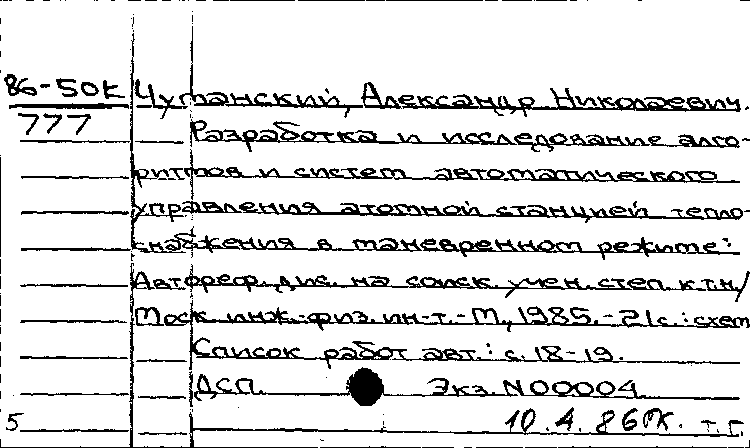 86-50к Чуманский, Александр Николаевич.
777 Разработка и исследование алго-
ритмов и систем автоматического
управления атомной станцией тепло-
снабжения в маневренном режиме:
Автореф. дис. на соиск. учен. степ. к.т.н/
Моск. инж.-физ. ин-т.-М., 1985.-21с.:схем
Список работ авт.: с. 18-19.
ДСП. Экз. N00004
5 10.4.86 т.г.